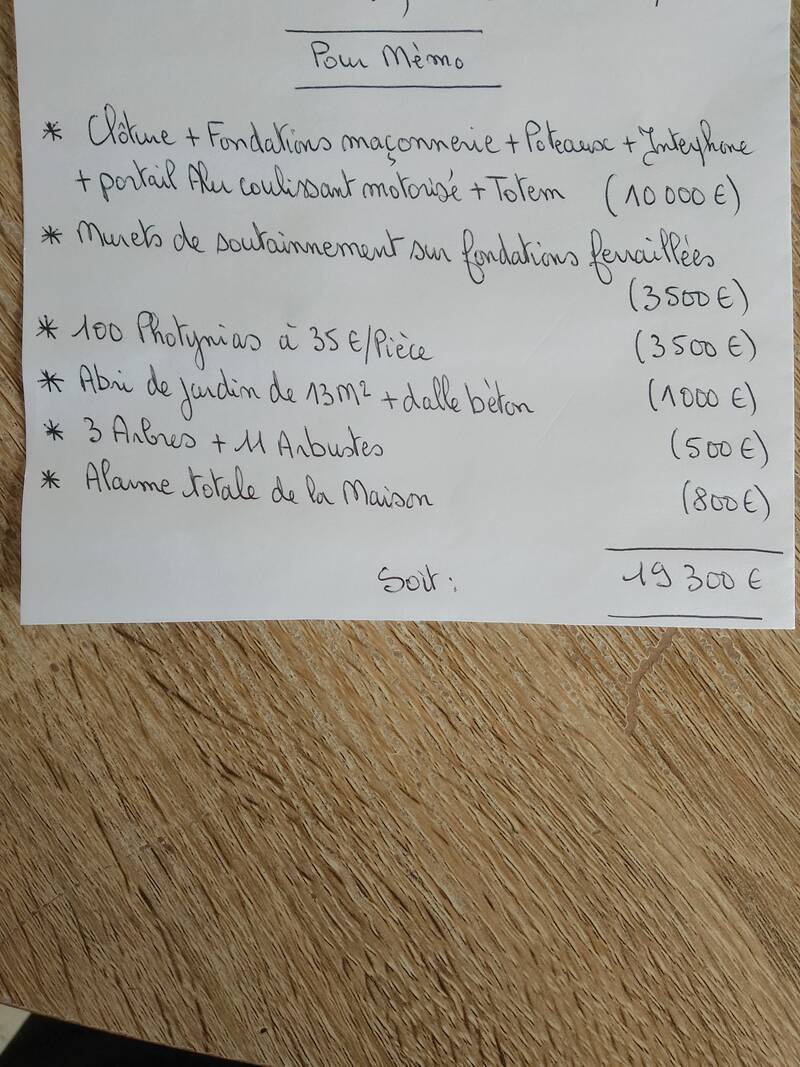 Pour Mèmo
* Clôture + Fondations maçonnerie + Poteaux + Interphone
+ portail Alu coulissant motorisé + Totem (10 000 €)
* Murets de soutainnement sur fondations ferraillées
(3 500 €)
* 100 Photynias à 35 €/Pièce (3 500 €)
* Abri de jardin de 13 m² + dalle bèton (1 000 €)
* 3 Arbres + 11 Arbustes (500 €)
* Alarme totale de la Maison (800 €)
Soit : 19 300 €